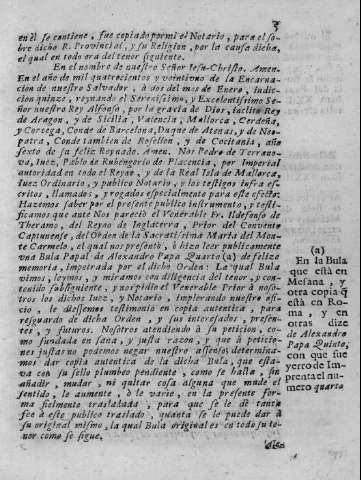 3
en èl se contiene, fue copiado por mi el Notario, para el so-
bre dicho R. Provincial, y su Religion, por la causa dicha,
el qual en todo era del tenor siguiente.
En el nombre de nuestro Señor Iesu-Christo. Amen.
En el año de mil quatrocientos y veintiuno de la Encarna-
cion de nuestro Salvador, à dos del mes de Enero, indic-
cion quinze, reynando el Serenissimo, y Excelentissimo Se-
ñor nuestro Rey Alfonso, por la gracia de Dios, inclito Rey
de Aragon, y de Sicilia, Valencia, Mallorca, Cerdeña,
y Corcega, Conde de Barcelona, Duque de Atenas, y de Neo-
patra, Conde tambien de Rosellon, y de Cocitania, año
sexto de su felize Reynado. Amen. Nos Pedro de Terrano-
va, Iuez, Pablo de Rubengorio de Placencia, por Imperial
autoridad en todo el Reyno, y de la Real Isla de Mallorca,
Iuez Ordinario, y publico Notario, y los testigos infra es-
critos, llamados, y rogados especialmente para este efecto:
Hazemos saber por el presente publico instrumento, y testi-
ficamos que ante Nos pareciò el Venerable Fr. Ildefonso de
Theramo, del Reyno de Inglaterra, Prior del Convento
Captunense, del Orden de la Santissima Maria del Mon-
te Carmelo, el qual nos presentò, ò hizo leer publicamente
vna Bula Papal de Alexandro Papa Quarto (a) de felize
memoria, impetrada por el dicho Orden: La qual Bula
vimos, leymos, y miramos con diligencia del tenor, y con-
tenido subsiguiente, y nos pidio el Venerable Prior à noso-
tros los dichos Iuez, y Notario, implorando nuestro ofi-
cio, le diessemos testimonio en copia autentica, para
resguardo de dicha Orden, y sus interesados, presen-
tes, y futuros. Nosotros atendiendo à su peticion, como
fundada en sana, y justa razon, y que à peticio-
nes justas no podemos negar nuestro assenso; determina-
mos dar copia autentica de la dicha Bula, que esta-
va con su sello plumbeo pendiente, como se halla, sin
añadir, mudar, ni quitar cosa alguna que mude el
sentido, le aumente, ò le varie, en la presente for-
ma fielmente trasladada, para que se le dè tanta
fee à este publico traslado, quanta se le puede dar à
su original mismo, la qual Bula original es en todo su te-
nor como se sigue.
(a)
En la Bula
que està en
Mesana, y
otra copia q̃
està en Ro-
ma, y en
otras dize
de Alexandro
Papa Quinto,
con que fue
yerro de Im-
prenta el nu-
mero quarto